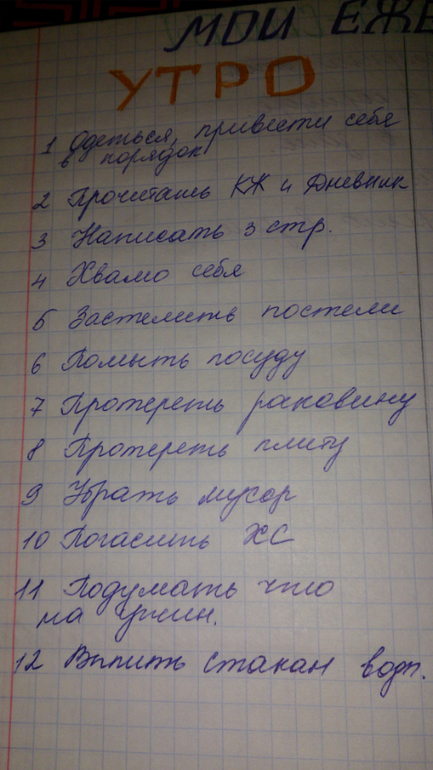 МОИ ЕЖЕ
УТРО
1 Одеться, привести себя
в порядок
2 Прочитать КЖ и Дневник
3 Написать 3 стр.
4 Хвамо себя
5 Застелить постели
6 Помыть посуду
7 Протереть раковину
8 Протереть плиту
9 Убрать мусор
10 Погасить ХС
11 Подумать что
на ужин.
12 Выпить стакан воды.